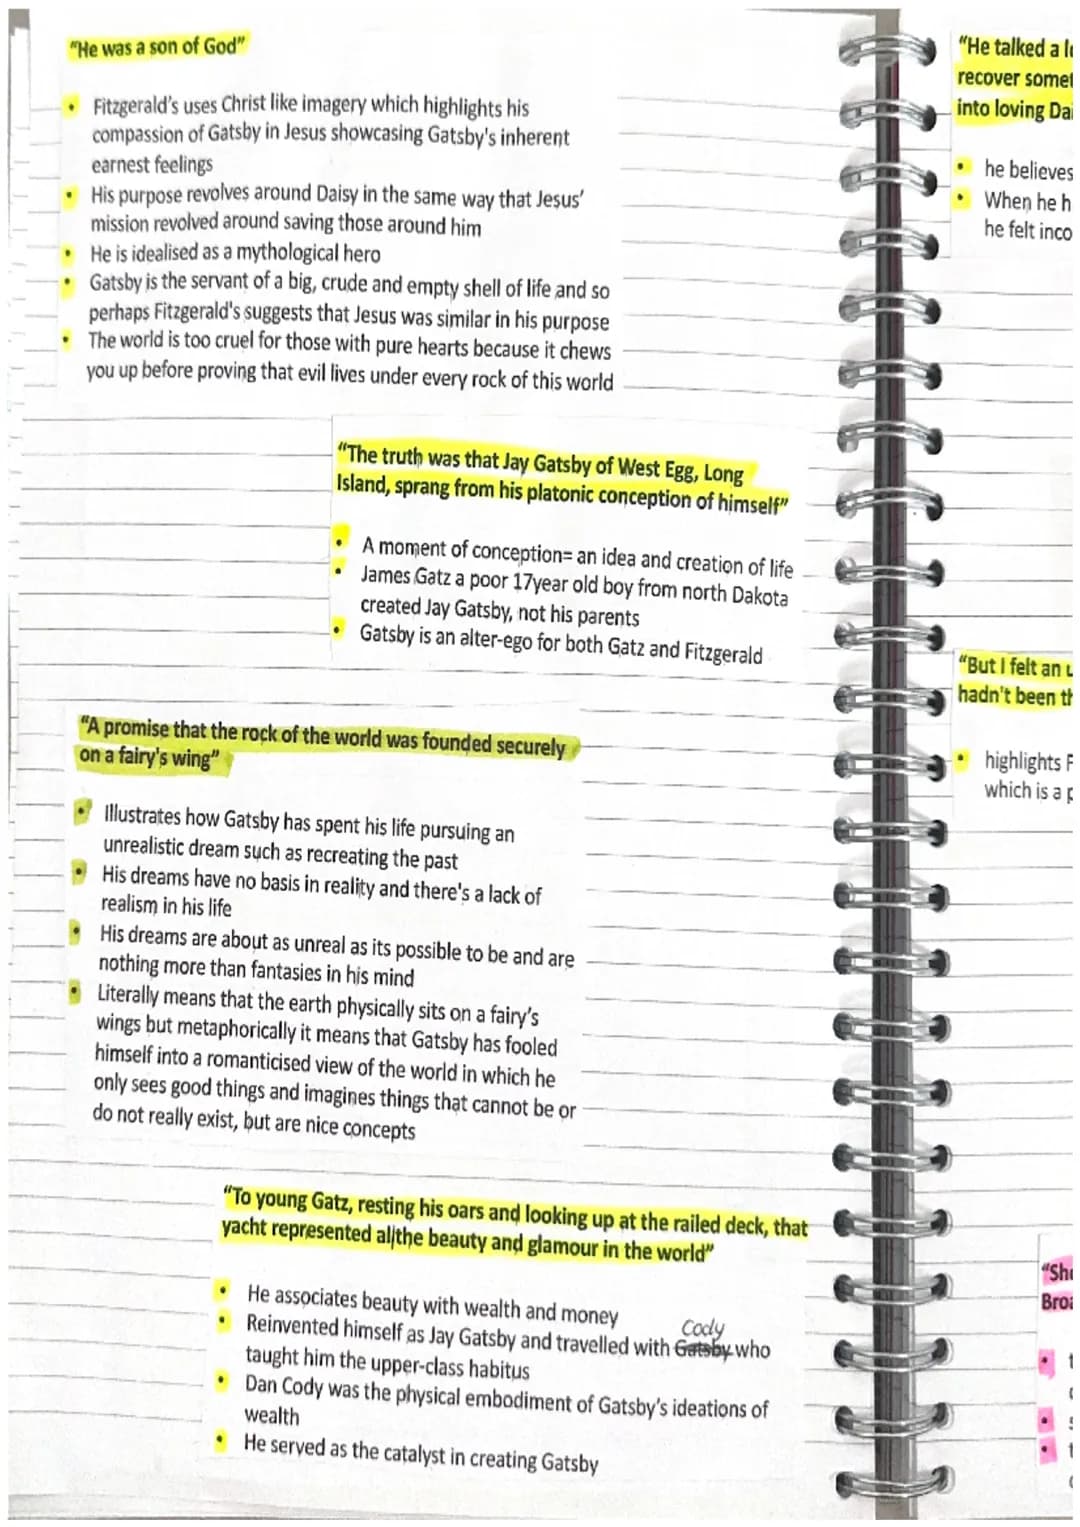 "He was a son of God"
Fitzgerald's uses Christ like imagery which highlights his
compassion of Gatsby in Jesus showcasing Gatsby's inherent
earnest feelings
His purpose revolves around Daisy in the same way that Jesus'
mission revolved around saving those around him
He is idealised as a mythological hero
Gatsby is the servant of a big, crude and empty shell of life and so
perhaps Fitzgerald's suggests that Jesus was similar in his purpose
The world is too cruel for those with pure hearts because it chews
you up before proving that evil lives under every rock of this world
"The truth was that Jay Gatsby of West Egg, Long
Island, sprang from his platonic conception of himself"
A moment of conception= an idea and creation of life
James Gatz a poor 17year old boy from north Dakota
created Jay Gatsby, not his parents
Gatsby is an alter-ego for both Gatz and Fitzgerald
"A promise that the rock of the world was founded securely
on a fairy's wing"
Illustrates how Gatsby has spent his life pursuing an
unrealistic dream such as recreating the past
His dreams have no basis in reality and there's a lack of
realism in his life
His dreams are about as unreal as its possible to be and are
nothing more than fantasies in his mind
Literally means that the earth physically sits on a fairy's
wings but metaphorically it means that Gatsby has fooled
himself into a romanticised view of the world in which he
only sees good things and imagines things that cannot be or
do not really exist, but are nice concepts
"To young Gatz, resting his oars and looking up at the railed deck, that
yacht represented all the beauty and glamour in the world"
He associates beauty with wealth and money
Cody
Reinvented himself as Jay Gatsby and travelled with Gatsby who
taught him the upper-class habitus
Dan Cody was the physical embodiment of Gatsby's ideations of
wealth
He served as the catalyst in creating Gatsby
"He talked a
recover
into loving
he believes
When he
he felt
"But I felt an
hadn't been
highlights
which is a